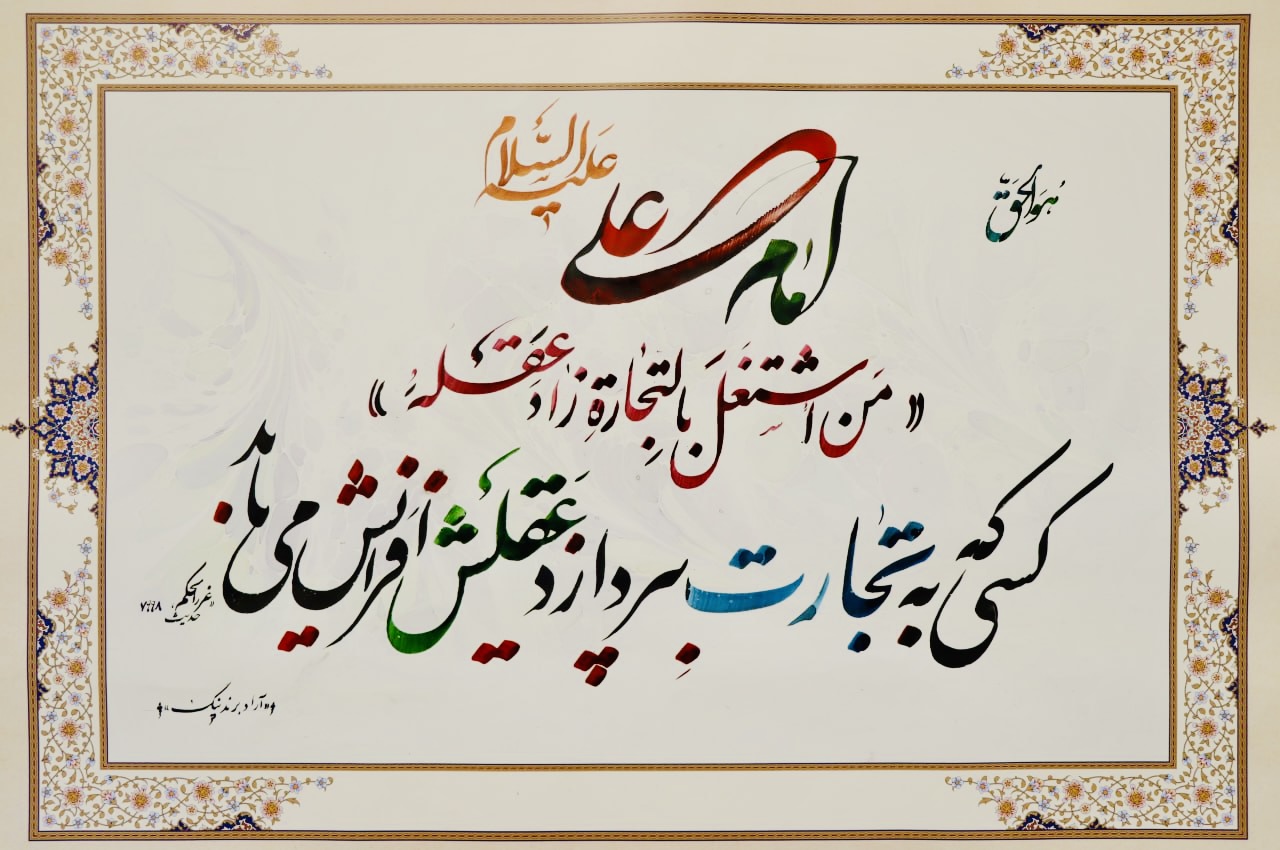 هُوَ الحَقّ
امام علی عَلَیهِ السَّلام
« مَن اشتَغَلَ بِالتِجارَةِ زادَ عَقلهُ »
کسی که به تجارت بِپردازد عَقلیش افزایش می یابد
«غررالحکم،
حدیث
«آراد برندینگ»